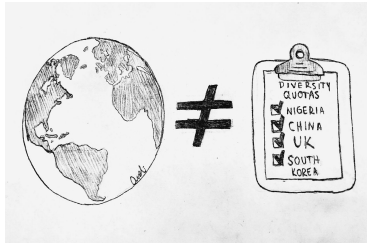 ≠
DIVERSITY
QUOTAS
NIGERIA
CHINA
UK
SOUTH
KOREA